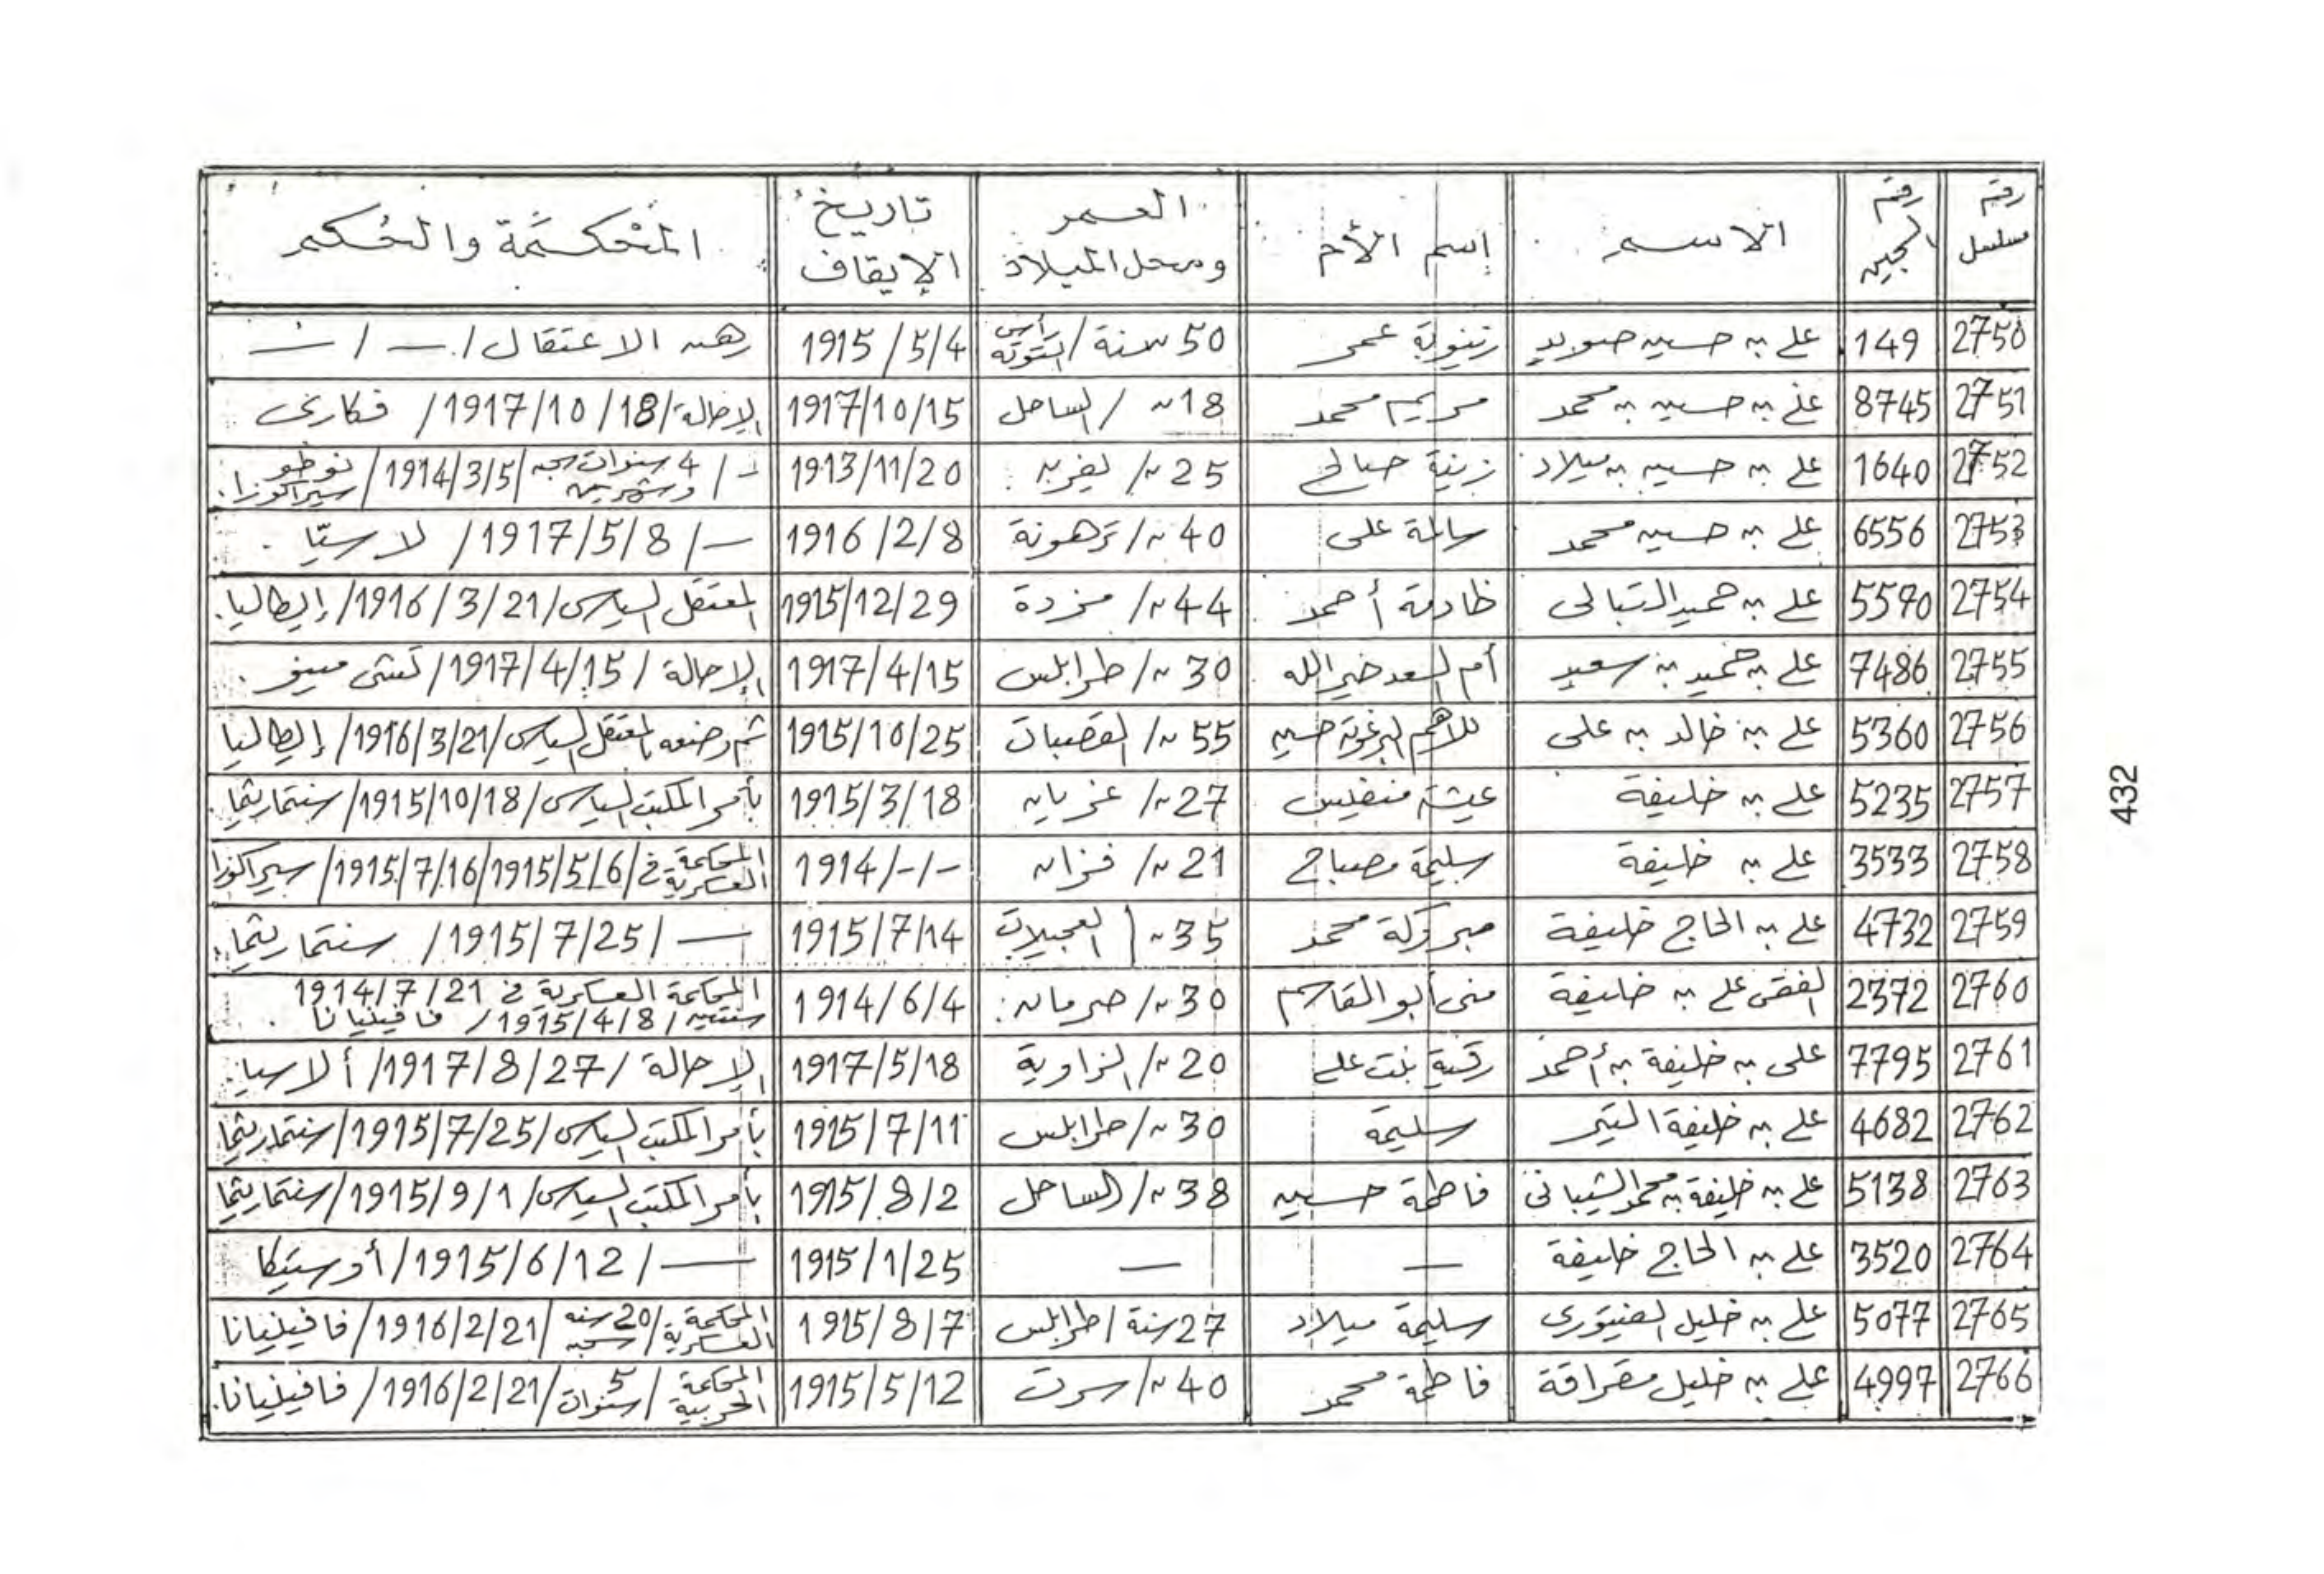 رقم مسلسل | رقم السجين | الاسم | إسم الأم | العمر ومحل الميلاد | تاريخ الإيقاف | المحكمة والحكم
2750 | 149 | على بن حسين صويد | زينوبة عمر | 50 سنة / رأس التوتة | 1915/5/4 | رهن الاعتقال / — / —
2751 | 8745 | على بن حسين بن محمد | مريم محمد | 18 " / الساحل | 1917/10/15 | الإحالة / 1917/10/18 / فكارى
2752 | 1640 | على بن حسين بن ميلاد | زينة صالح | 25 " / يفرن | 1913/11/20 | - / 4 سنوات سجن وشهرين / 1914/3/5 / نوطو سيراكوزا.
2753 | 6556 | على بن حسين محمد | سالمة على | 40 " / ترهونة | 1916/2/8 | — / 1917/5/8 / لاستيا
2754 | 5590 | على بن حميد التبالى | خادمة أحمد | 44 " / مزدة | 1915/12/29 | المعتقل السياسى / 1916/3/21 / إيطاليا.
2755 | 7486 | على بن حميد بن سعيد | أم السعد خير الله | 30 " / طرابلس | 1917/4/15 | الإحالة / 1917/4/15 /
2756 | 5360 | على بن خالد بن على | حسين | 55 " / القصبات | 1915/10/25 | تم وضعه المعتقل السياسى / 1916/3/21 / إيطاليا
2757 | 5235 | على بن خليفة | عيشة | 27 " / غريان | 1915/3/18 | بأمر المكتب السياسى / 1915/10/18 / سنتماريتما.
2758 | 3533 | على بن خليفة | سليمة مصباح | 21 " / فزان | 1914/-/- | المحكمة العسكرية فى / 1915/5/6 / 1915/7/16 / سيراكوزا
2759 | 4732 | على بن الحاج خليفة | مبروكة محمد | 35 " / العجيلات | 1915/7/14 | — / 1915/7/25 / سنتماريتما.
2760 | 2372 | الفقى على بن خليفة | منى أبو القاسم | 30 " / صرمان | 1914/6/4 | المحكمة العسكرية فى 1914/7/21 سنتين / 1915/4/8 / فافينيانا.
2761 | 7795 | على بن خليفة بن أحمد | رقية بنت على | 20 " / الزاوية | 1917/5/18 | الإحالة / 1917/8/27 / ألاسيا.
2762 | 4682 | على بن خليفة التير | سليمة | 30 " / طرابلس | 1915/7/11 | بأمر المكتب السياسى / 1915/7/25 / سنتماريتما
2763 | 5138 | على بن خليفة بن محمد الشيبانى | فاطمة حسين | 38 " / الساحل | 1915/8/2 | بأمر المكتب السياسى / 1915/9/1 / سنتماريتما
2764 | 3520 | على بن الحاج خليفة | — | — | 1915/1/25 | — / 1915/6/12 / أوستيكا
2765 | 5077 | على بن خليل الفيتورى | سليمة ميلاد | 27 سنة / طرابلس | 1915/8/7 | المحكمة العسكرية / 20 سنه سجن / 1916/2/21 / فافينيانا
2766 | 4997 | على بن خليل مقراقة | فاطمة محمد | 40 " / سرت | 1915/5/12 | المحكمة الحربية / 5 سنوات / 1916/2/21 / فافينيانا.
432